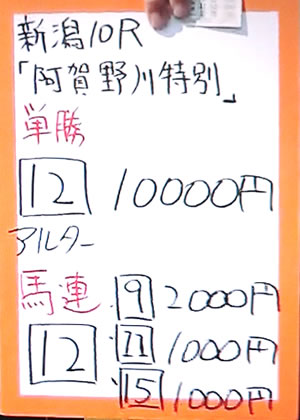 新潟10R
「阿賀野川特別」
単勝
12 10000円
アルター
馬連 9 2000円
12 11 1000円
15 1000円